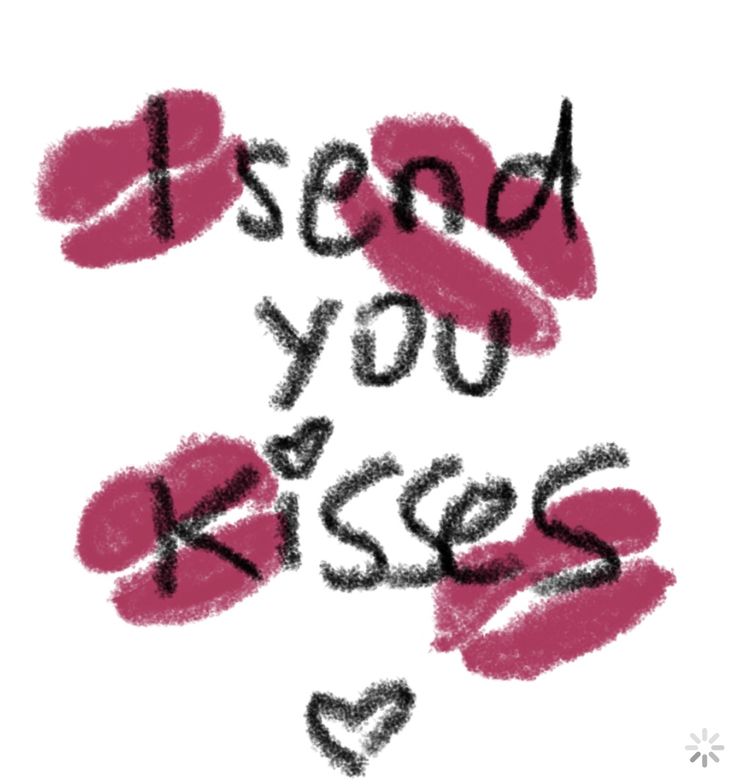 I send
you
Kisses